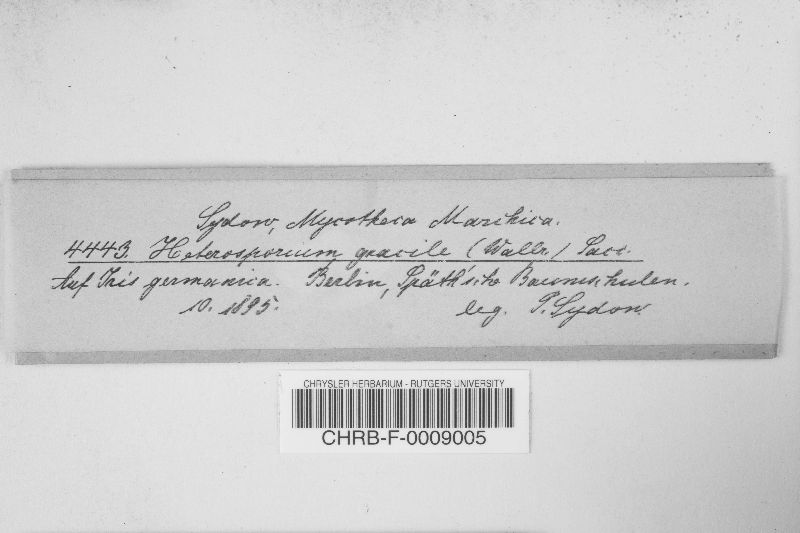 Sydow, Mycotheca Marchica.
4443. Heterosporium gracile (Wallr.) Sacc.
Auf Iris germanica. Berlin, Späth'sche Baumschulen.
10. 1895. leg. P. Sydow.
CHRYSLER HERBARIUM - RUTGERS UNIVERSITY
CHRB-F-0009005